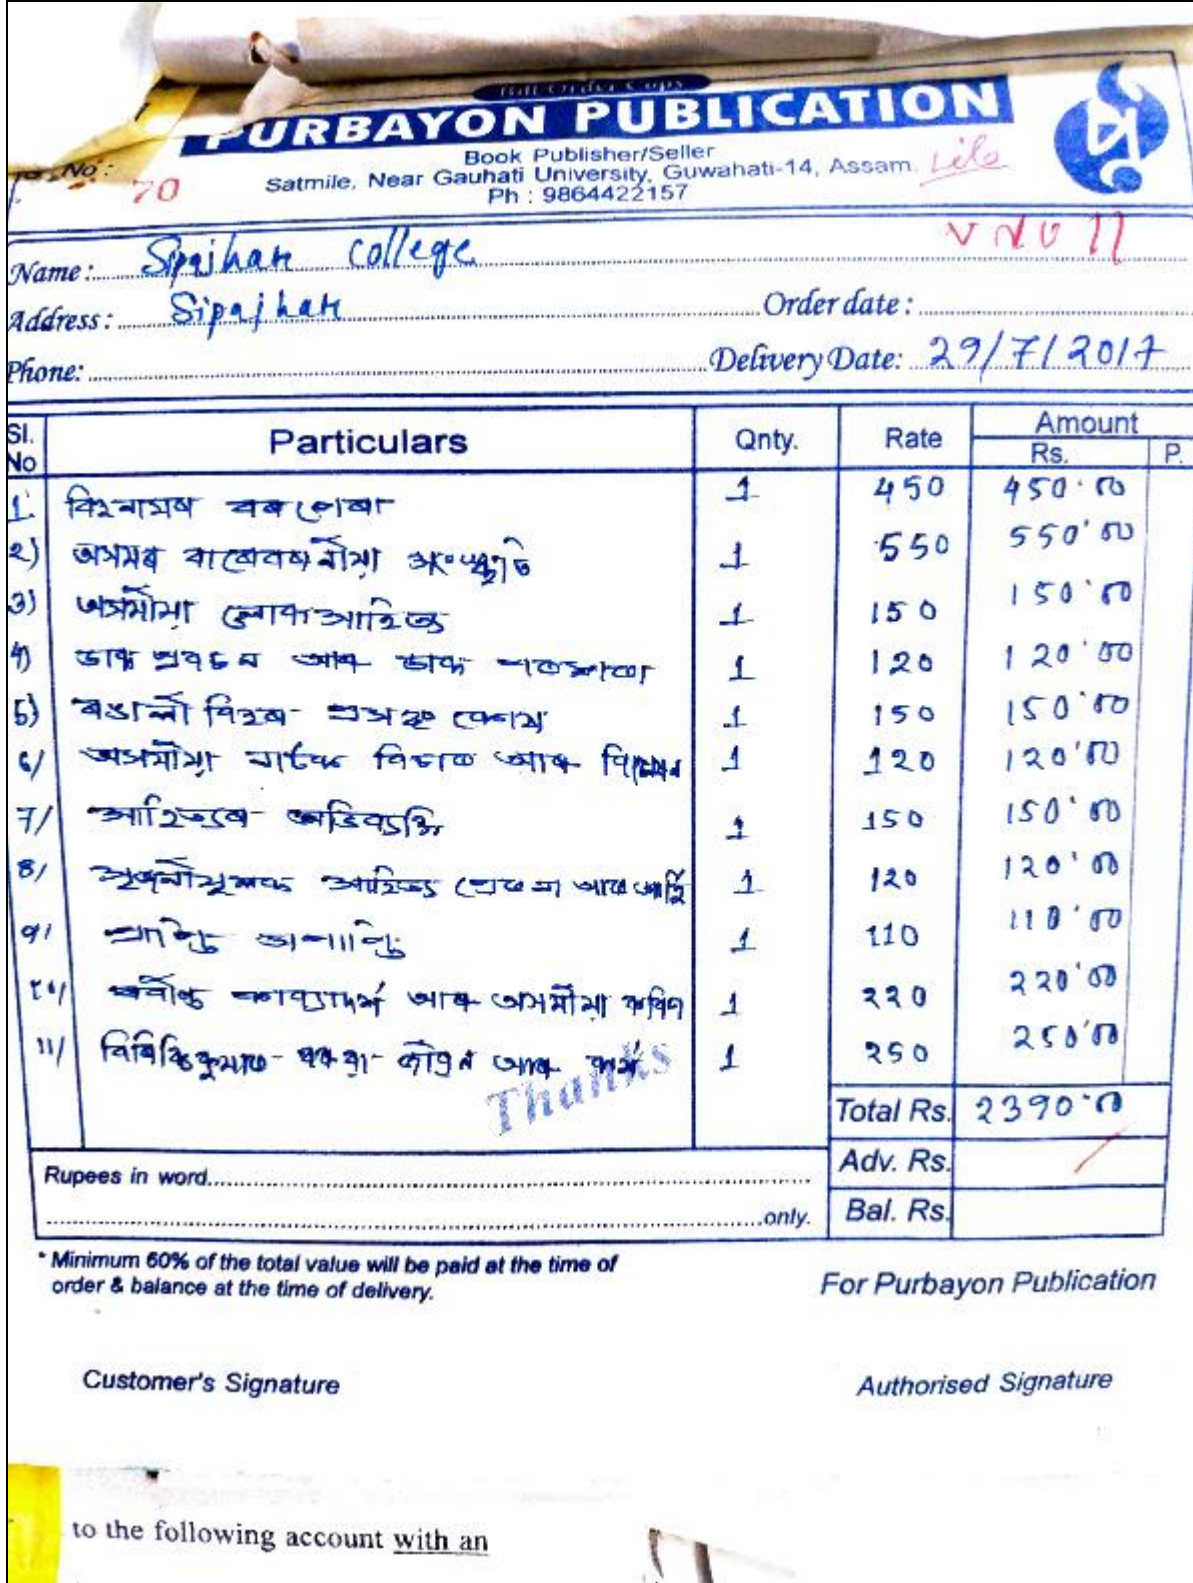 Bill Order Copy
PURBAYON PUBLICATION
Book Publisher/Seller
Satmile, Near Gauhati University, Guwahati-14, Assam.
Ph : 9864422157
No : 70
VNO 11
Name : Sipajhar College
Address : Sipajhar Order date :
Phone: Delivery Date: 29/7/2017
Sl. No Particulars Qnty. Rate Amount
Rs. P.
1. 1 450 450.00
২) অসমৰ বাৰেবৰণীয়া সংস্কৃতি 1 550 550.00
3) অসমীয়া লোকসাহিত্য 1 150 150.00
4) ডাক প্ৰবচন আৰু ডাক 1 120 120.00
5) ৰঙালী বিহুৰ প্ৰসঙ্গ কোষ 1 150 150.00
6/ অসমীয়া নাটক বিচাৰ আৰু বিশ্লেষণ 1 120 120.00
7/ সাহিত্যৰ অভিব্যক্তি 1 150 150.00
8/ সৃজনীমূলক সাহিত্য প্ৰেৰণা আৰু 1 120 120.00
9/ 1 110 110.00
10/ কাব্যাদৰ্শ আৰু অসমীয়া কবিতা 1 220 220.00
11/ বিৰিঞ্চিকুমাৰ বৰুৱা জীৱন আৰু কৰ্ম 1 250 250.00
Thanks
Total Rs. 2390.00
Adv. Rs.
Rupees in word
only. Bal. Rs.
* Minimum 60% of the total value will be paid at the time of
order & balance at the time of delivery.
For Purbayon Publication
Customer's Signature Authorised Signature
to the following account with an